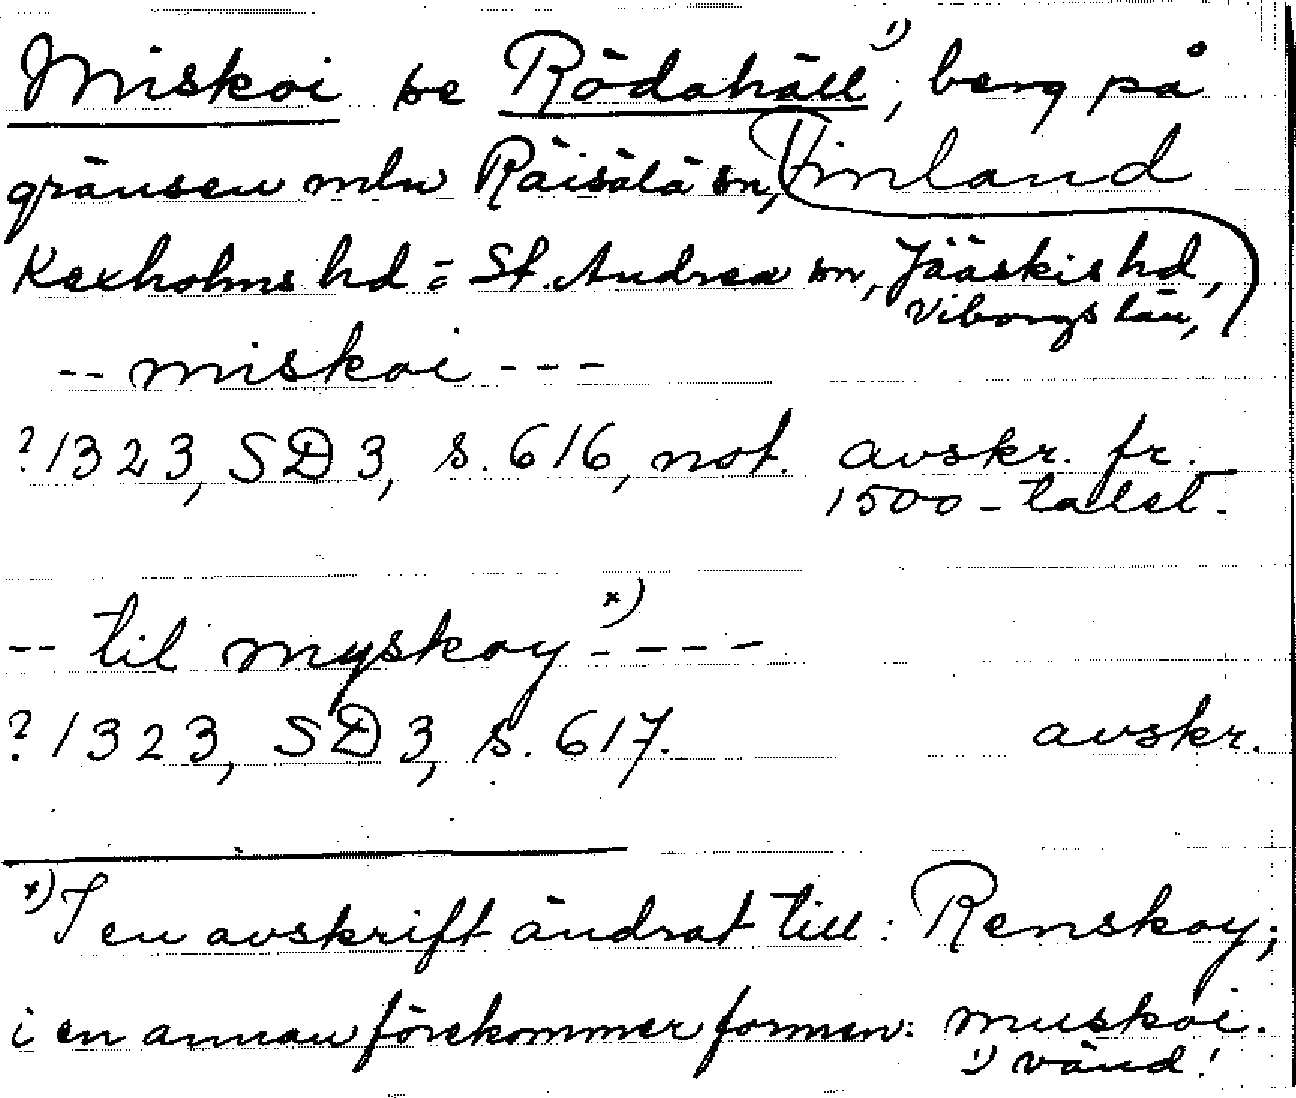 Miskoi se Rödahäll¹⁾, berg på
gränsen mln Räisälä sn, Finland
Kexholms hd = St. Andrea sn, Jääskis hd,
Viborgs län,
-- miskoi ---
? 1323, SD 3, s. 616, not. avskr. fr.
1500-talet.
-- til myskoy ˣ⁾ ----
? 1323, SD 3, s. 617. avskr.
ˣ⁾ I en avskrift ändrat till: Renskoy;
i en annan förekommer formen: muskoi.
¹⁾ vänd!